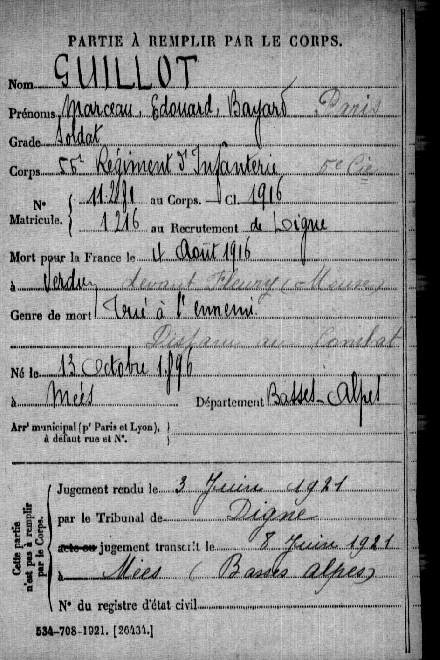 PARTIE À REMPLIR PAR LE CORPS.
Nom GUILLOT
Prénoms Marceau, Edouard, Bayard Paris
Grade Soldat
Corps 55e Régiment d'Infanterie 5e Cie
N° Matricule. 11.281 au Corps. — Cl. 1916
1216 au Recrutement de Digne
Mort pour la France le 4 Août 1916
à Verdun devant Fleury (Meuse)
Genre de mort Tué à l'ennemi
Disparu au Combat
Né le 13 Octobre 1896
à Mées Département Basses-Alpes
Arrt municipal (pr Paris et Lyon),
à défaut rue et N°.
Cette partie n'est pas à remplir par le Corps.
Jugement rendu le 3 Juin 1921
par le Tribunal de Digne
acte ou jugement transcrit le 8 Juin 1921
à Mées (Basses Alpes)
N° du registre d'état civil
534-708-1921. [26434.]